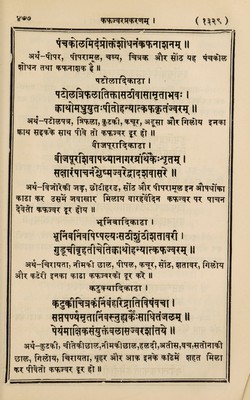 ४७७ कफज्वरप्रकरणम् । (१३२९)
पंचकोलमिदंप्रोक्तंशोधनंकफनाशनम् ॥
अर्थ-पीपर, पीपरामूल, चव्य, चित्रक और सोंठ यह पंचकोल
शोधन तथा कफनाशक है ॥
पटोलादिकाढा ।
पटोलत्रिफलातिक्तासठीवासामृताभवः ।
क्वाथोमधुयुतःपीतोहन्यात्कफकृतंज्वरम् ॥
अर्थ-पटोलपत्र, त्रिफला, कुटकी, कचूर, अडूसा और गिलोय इनका
काढा सहतके साथ पीवे तो कफज्वर दूर हो ॥
बीजपूरादिकाढा ।
बीजपूरशिवापथ्यानागरग्रंथिकैःशृतम् ।
सक्षारंपाचनंश्लेष्मज्वरेद्वादशवासरे ॥
अर्थ-बिजोरेकी जड़, छोटीहरड, सोंठ और पीपरामूल इन औषधोंका
काढा कर उसमें जवाखार मिलाय बारहवेंदिन कफज्वर पर पाचन
देवेतो कफज्वर दूर होय ॥
भूनिंबादिकाढा ।
भूनिंबनिंबपिप्पल्यःशठीशुंठीशतावरी ।
गुडूचीबृहतीचेतिक्वाथोहन्यात्कफज्वरम् ॥
अर्थ-चिरायता, नीमकी छाल, पीपल, कचूर, सोंठ, शतावर, गिलोय
और कटेरी इनका काढा कफज्वरको दूर करे ॥
कटुक्यादिकाढा ।
कटुकीचित्रकंनिंबंहरिद्रातिविषंवचा ।
सप्तपर्ण्यमृतानिंबस्नुह्यर्कैःसाधितंजलम् ॥
पेयंमाक्षिकसंयुक्तंबलासज्वरशांतये ॥
अर्थ-कुटकी, चीतेकीछाल,नीमकीछाल,हलदी,अतीस,वच,सतोनाकी
छाल, गिलोय, चिरायता, थूहर और आक इनके काढेमें शहत मिला
कर पीवेतो कफज्वर दूर हो ॥